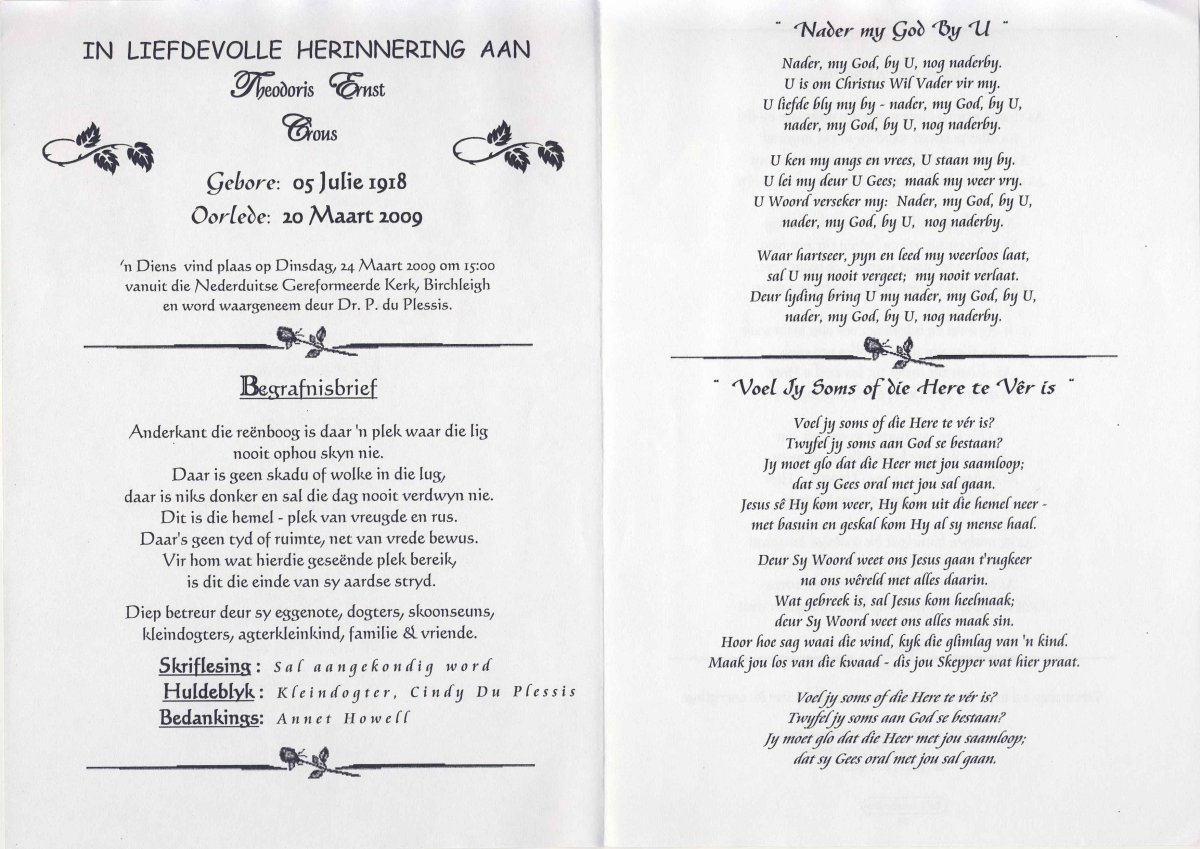 IN LIEFDEVOLLE HERINNERING AAN
Theodoris Ernst
Crous
Gebore: 05 Julie 1918
Oorlede: 20 Maart 2009
'n Diens vind plaas op Dinsdag, 24 Maart 2009 om 15:00
vanuit die Nederduitse Gereformeerde Kerk, Birchleigh
en word waargeneem deur Dr. P. du Plessis.
Begrafnisbrief
Anderkant die reënboog is daar 'n plek waar die lig
nooit ophou skyn nie.
Daar is geen skadu of wolke in die lug,
daar is niks donker en sal die dag nooit verdwyn nie.
Dit is die hemel - plek van vreugde en rus.
Daar's geen tyd of ruimte, net van vrede bewus.
Vir hom wat hierdie geseënde plek bereik,
is dit die einde van sy aardse stryd.
Diep betreur deur sy eggenote, dogters, skoonseuns,
kleindogters, agterkleinkind, familie & vriende.
Skriflesing : Sal aangekondig word
Huldeblyk : Kleindogter, Cindy Du Plessis
Bedankings: Annet Howell
" Nader my God By U "
Nader, my God, by U, nog naderby.
U is om Christus Wil Vader vir my.
U liefde bly my by - nader, my God, by U,
nader, my God, by U, nog naderby.
U ken my angs en vrees, U staan my by.
U lei my deur U Gees; maak my weer vry.
U Woord verseker my: Nader, my God, by U,
nader, my God, by U, nog naderby.
Waar hartseer, pyn en leed my weerloos laat,
sal U my nooit vergeet; my nooit verlaat.
Deur lyding bring U my nader, my God, by U,
nader, my God, by U, nog naderby.
" Voel Jy Soms of die Here te Vêr is "
Voel jy soms of die Here te vér is?
Twyfel jy soms aan God se bestaan?
Jy moet glo dat die Heer met jou saamloop;
dat sy Gees oral met jou sal gaan.
Jesus sê Hy kom weer, Hy kom uit die hemel neer -
met basuin en geskal kom Hy al sy mense haal.
Deur Sy Woord weet ons Jesus gaan t'rugkeer
na ons wêreld met alles daarin.
Wat gebreek is, sal Jesus kom heelmaak;
deur Sy Woord weet ons alles maak sin.
Hoor hoe sag waai die wind, kyk die glimlag van 'n kind.
Maak jou los van die kwaad - dis jou Skepper wat hier praat.
Voel jy soms of die Here te vér is?
Twyfel jy soms aan God se bestaan?
Jy moet glo dat die Heer met jou saamloop;
dat sy Gees oral met jou sal gaan.